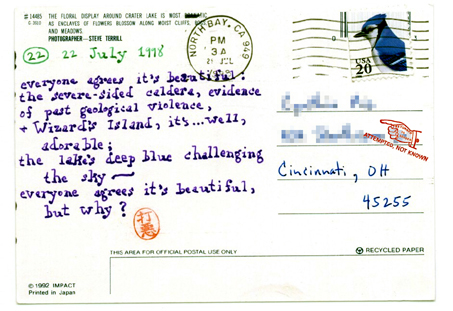 # 14485 THE FLORAL DISPLAY AROUND CRATER LAKE IS MOST
AS ENCLAVES OF FLOWERS BLOSSOM ALONG MOIST CLIFFS,
AND MEADOWS
PHOTOGRAPHER—STEVE TERRILL
22 22 July 1998
everyone agrees it's beautiful:
the severe-sided caldera, evidence
of past geological violence,
+ Wizard's Island, it's...well,
adorable;
the lake's deep blue challenging
the sky —
everyone agrees it's beautiful,
but why?
© 1992 IMPACT
Printed in Japan
NORTH BAY, CA 949
PM
USA
20
ATTEMPTED, NOT KNOWN
Cincinnati, OH
45255
THIS AREA FOR OFFICIAL POSTAL USE ONLY
RECYCLED PAPER